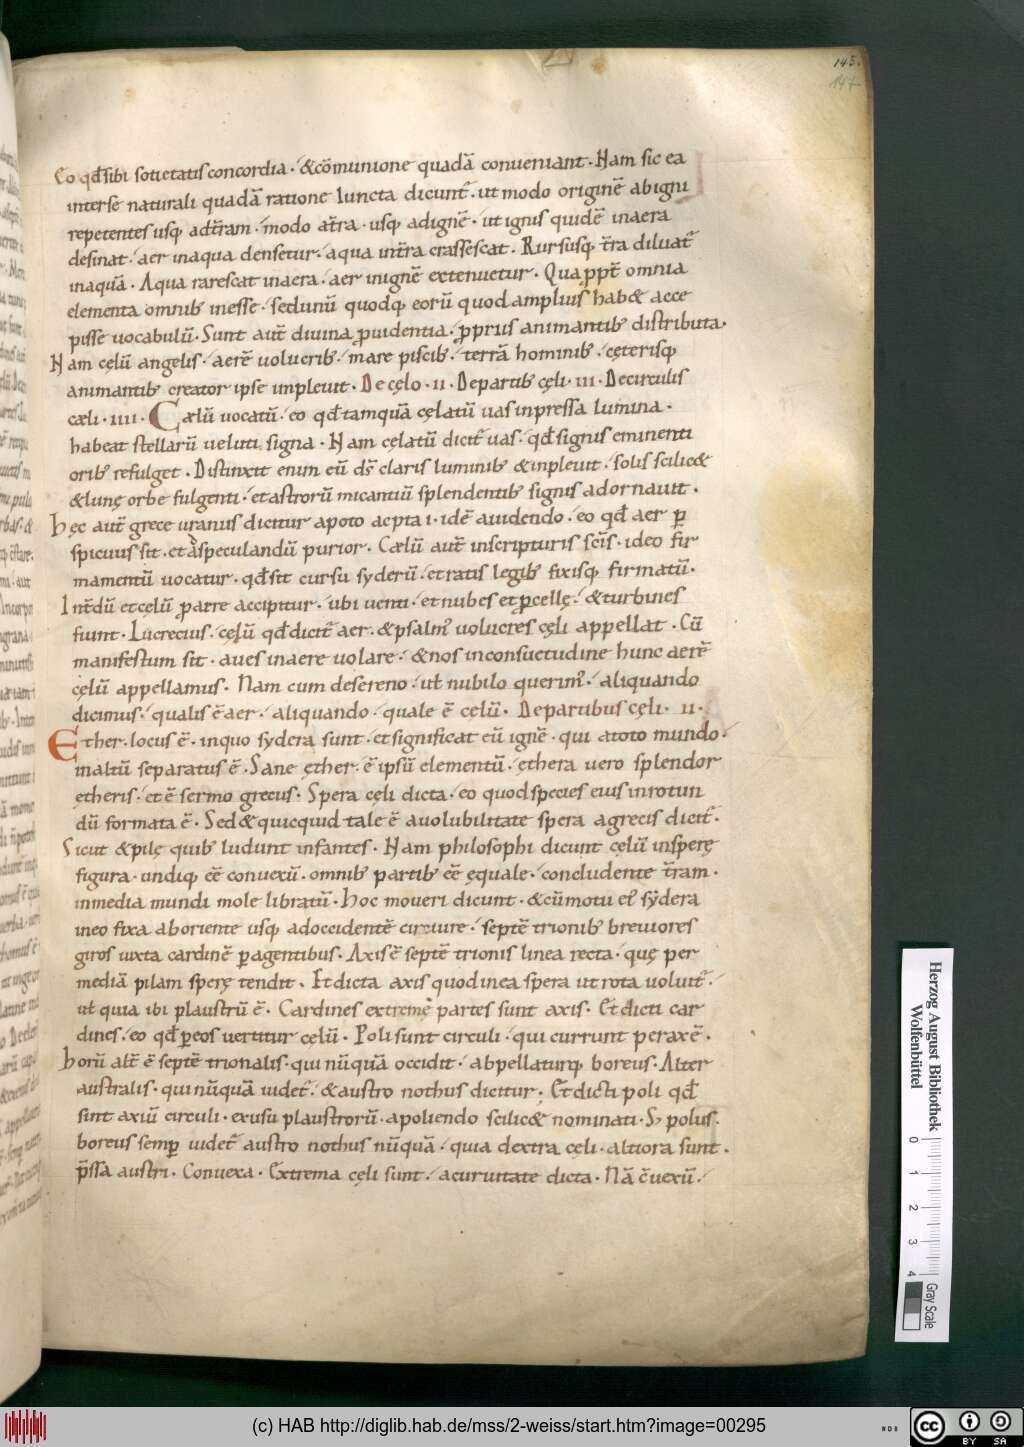 145.
147
Eo qđ sibi sotietatis concordia · &cōmunione quadā conueniant · Nam sic ea
interse naturali quadā ratione Iuncta dicunt̃ · ut modo originē abigni
repetentes usq; adt̃ram · modo at̃ra · usq; adignē · ut ignis quidē inaera
desinat · aer inaqua densetur · aqua int̃ra crassescat · Rursusq; t̃ra diluat̃
inaquā · Aqua rarescat inaera · aer inignē extenuetur · Quappt̃ omnia
elementa omnib; inesse · sed unū quodq; eorū quod amplius hab& acce
pisse uocabulū · Sunt aut̃ diuina ꝓuidentia · ꝓprus animantib; distributa ·
Nam cęlū angelis · aerē uolucrib; · mare piscib; · terrā hominib; · cęterisq;
animantib; creator ipse impleuit · De cęlo · II · Departib; cęli · III · Decirculis
cæli · IIII · Cælū uocatū · eo qđ tamquā cęlatū uas inpressa lumina ·
habeat stellarū ueluti signa · Nam cęlatū dicit̃ uas · qđ signis eminenti
orib; refulget · Distinxit enim eū ds̄ claris luminib; &inpleuit · solis scilic&
&lunę orbe fulgenti · et astrorū micantiū splendentib; signis adornauit ·
hęc aut̃ grece uranus dicitur apoto acpta i · idē auidendo · eo qđ aer ꝑ
spicuus sit · et aspeculandū purior · Cælū aut̃ inscripturis scīs · ideo fir
mamentū uocatur · qđ sit cursu syderū · et ratis legib; fixisq; firmatū ·
Int̃dū et cęlū ꝓ aere accipitur · ubi uenti · et nubes et ꝓcellę · &turbines
fiunt · Lucrecius · cęlū qđ dicit̃ aer · &psalm᷒ uolucres cęli appellat · Cū
manifestum sit · aues inaere uolare · &nos inconsuetudine hunc aerē
cęlū appellamus · Nam cum desereno · ut̃ nubilo querim᷒ · aliquando
dicimus · qualis ē aer · aliquando · quale ē cęlū · Departibus cęli · II ·
Ether · locus ē · inquo sydera sunt · et significat eū ignē · qui atoto mundo ·
inaltū separatus ē · Sane ęther · ē ipsū elementū · ęthera uero splendor
ętheris · et ē sermo grecus · Spera cęli dicta · eo quod species eius inrotun
dū formata ē · Sed & quicquid tale ē auolubilitate spera agrecis dicit̃ ·
Sicut &pilę quib; ludunt infantes · Nam philosophi dicunt cęlū insperę
figura · undiq; eē conuexū · omnib; partib; eē ęquale · concludente t̃ram ·
inmedia mundi mole libratū · hoc moueri dicunt · &cūmotu ei᷒ sydera
ineo fixa aboriente usq; adoccidentē circuire · septē trionib; breuiores
giros iuxta cardinē ꝑagentibus · Axis ē septē trionis linea recta · quę per
mediā pilam sperę tendit · Et dicta axis quod inea spera ut rota uoluit̃ ·
ut̃ quia ibi plaustrū ē · Cardines extremę partes sunt axis · Et dicti car
dines · eo qđ ꝑeos uertitur cęlū · Poli sunt circuli · qui currunt peraxē ·
horū alt̃ ē septē trionalis · qui nūquā occidit · abpellaturq; boreus · Alter
australis · qui nūquā uidet̃ · &austro nothus dicitur · Et dicti poli qđ
sint axiū circuli · exusu plaustrorū · apoliendo scilic& nominati · S; polus ·
boreus semꝑ uidet̃ austro nothus nūquā · quia dextra cęli · altiora sunt ·
p̄ssa austri · Conuexa · Extrema cęli sunt · acuruitate dicta · Nā c̄uexū ·
Herzog August Bibliothek
Wolfenbüttel
0 1 2 3 4
Gray Scale
(c) HAB http://diglib.hab.de/mss/2-weiss/start.htm?image=00295
cc BY SA